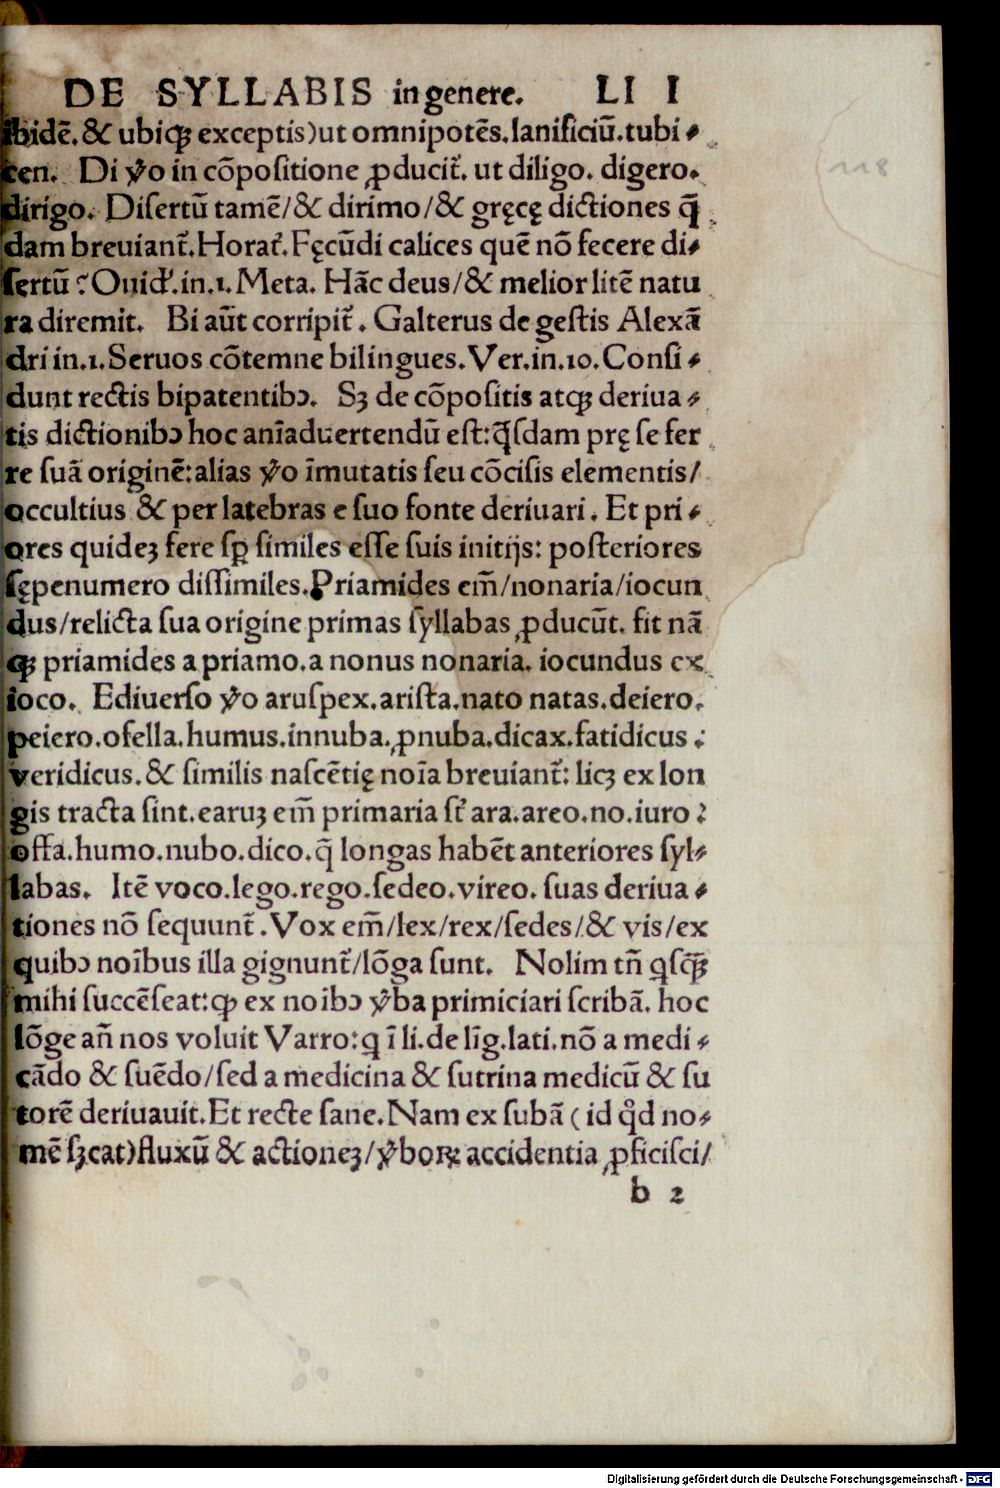 DE SYLLABIS in genere. LI I
ibidē. & ubiqꝫ exceptis) ut omnipotēs. lanificiū. tubi⸗
cen. Di ꝟo in cōpositione ꝓducit᷑. ut diligo. digero.
dirigo. Disertū tamē/& dirimo/& gręcę dictiones q̄
dam breuiant᷑. Horat᷑. Fęcūdi calices quē nō fecere di⸗
sertū? Ouid᷑. in. 1. Meta. Hāc deus/& melior litē natu
ra diremit. Bi aūt corripit᷑. Galterus de gestis Alexā
dri in. 1. Seruos cōtemne bilingues. Ver. in. 10. Consi⸗
dunt rectis bipatentibꝰ. Sꝫ de cōpositis atqꝫ deriua⸗
tis dictionibꝰ hoc anīaduertendū est: q̄sdam prę se fer
re suā originē: alias ꝟo īmutatis seu cōcisis elementis/
occultius & per latebras e suo fonte deriuari. Et pri⸗
ores quideꝫ fere sꝑ similes esse suis initijs: posteriores
sępenumero dissimiles. Priamides em̄/nonaria/iocun
dus/relicta sua origine primas syllabas ꝓducūt. fit nā
qꝫ priamides a priamo. a nonus nonaria. iocundus ex
ioco. Ediuerso ꝟo aruspex. arista. nato natas. deiero.
peiero. ofella. humus. innuba. ꝓnuba. dicax. fatidicus:
veridicus. & similis nascētię noīa breuiant᷑: licꝫ ex lon
gis tracta sint. earuꝫ em̄ primaria st᷑ ara. areo. no. iuro:
offa. humo. nubo. dico. q̄ longas habēt anteriores syl⸗
labas. Itē voco. lego. rego. sedeo. vireo. suas deriua⸗
tiones nō sequunt᷑. Vox em̄/lex/rex/sedes/& vis/ex
quibꝰ noībus illa gignunt᷑/lōga sunt. Nolim tn̄ qͥsqꝫ̄
mihi succēseat: ꝙ ex noībꝰ ꝟba primiciari scribā. hoc
lōge an̄ nos voluit Varro: q ī li. de līg. lati. nō a medi⸗
cādo & suēdo/sed a medicina & sutrina medicū & su
torē deriuauit. Et recte sane. Nam ex subā (id qͦd no⸗
mē sꝫcat) fluxū & actioneꝫ/ꝟboꝝ accidentia ꝓficisci/
b 2
118
Digitalisierung gefördert durch die Deutsche Forschungsgemeinschaft - DFG